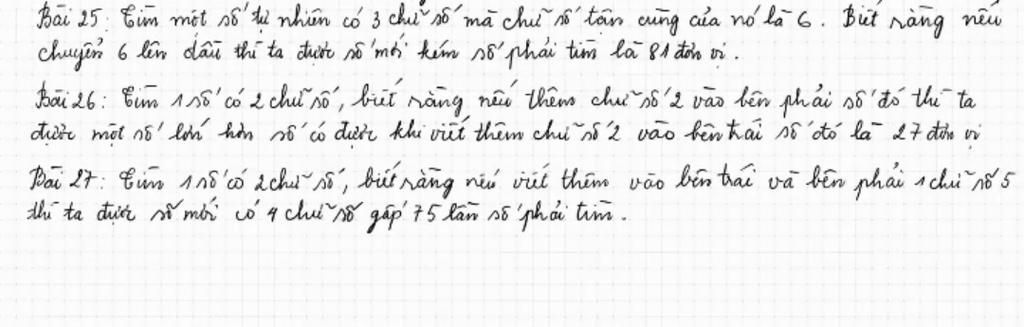 Bài 25: Tìm một số tự nhiên có 3 chữ số mà chữ số tận cùng của nó là 6. Biết rằng nếu
chuyển 6 lên đầu thì ta được số mới kém số phải tìm là 81 đơn vị.
Bài 26: Tìm 1 số có 2 chữ số, biết rằng nếu thêm chữ số 2 vào bên phải số đó thì ta
được một số lớn hơn số có được khi viết thêm chữ số 2 vào bên trái số đó là 27 đơn vị
Bài 27: Tìm 1 số có 2 chữ số, biết rằng nếu viết thêm vào bên trái và bên phải 1 chữ số 5
thì ta được số mới có 4 chữ số gấp 75 lần số phải tìm.